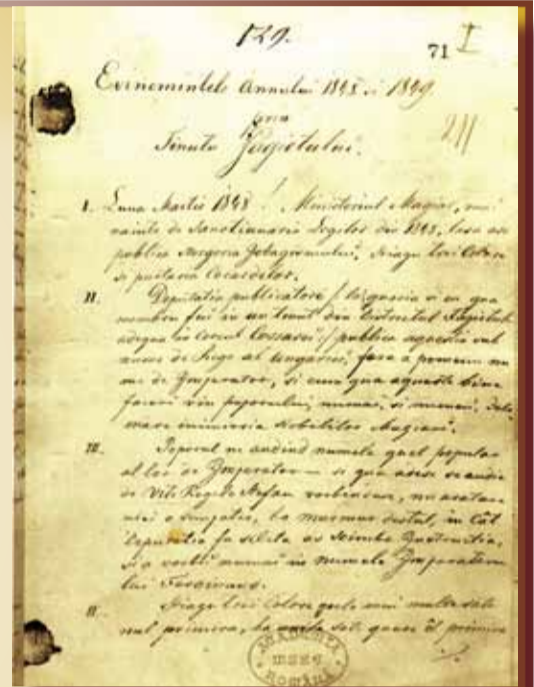 129.
71 I
Evinemintele Annului 1848 si 1849
prin
Tinutu Fagetului.
I. Luna Martie 1848! Ministeriul Magiar, mai
nainte de Sanctionarea Legilor din 1848, lasa a se
publica stergerea Jobagiumului, steagu trei Colore
si purtaria Cocardelor.
II. Deputatia publicatore / la quaria si eu qua
membru fui in un tient din Districtul Fagetului
adequa in Cercul Cossavi / publica aqueste
numa de Rege al Ungariei, fara a pomeni nu
me de Imperator, si cum qua aqueste bine
faceri vin poporului numai, si numai, din
mare inimioria Nobelilor Magiari.
III. Poporul ne audind numele quel popular
al lui de Imperator — si qua acest se audie
de Regele Stefan vorbindusse, nu aratase
nici o simpatie, ba murmur destul, in cât
Deputatia fu silita as scimba Instructia,
si a vorbi numai in numele Imperatorului
lui Ferdinand.
Steagu trei Colore quele mai multe sate
nul primira, ba unele sate quare îl primira
ACADEMIA
ROMÂNĂ